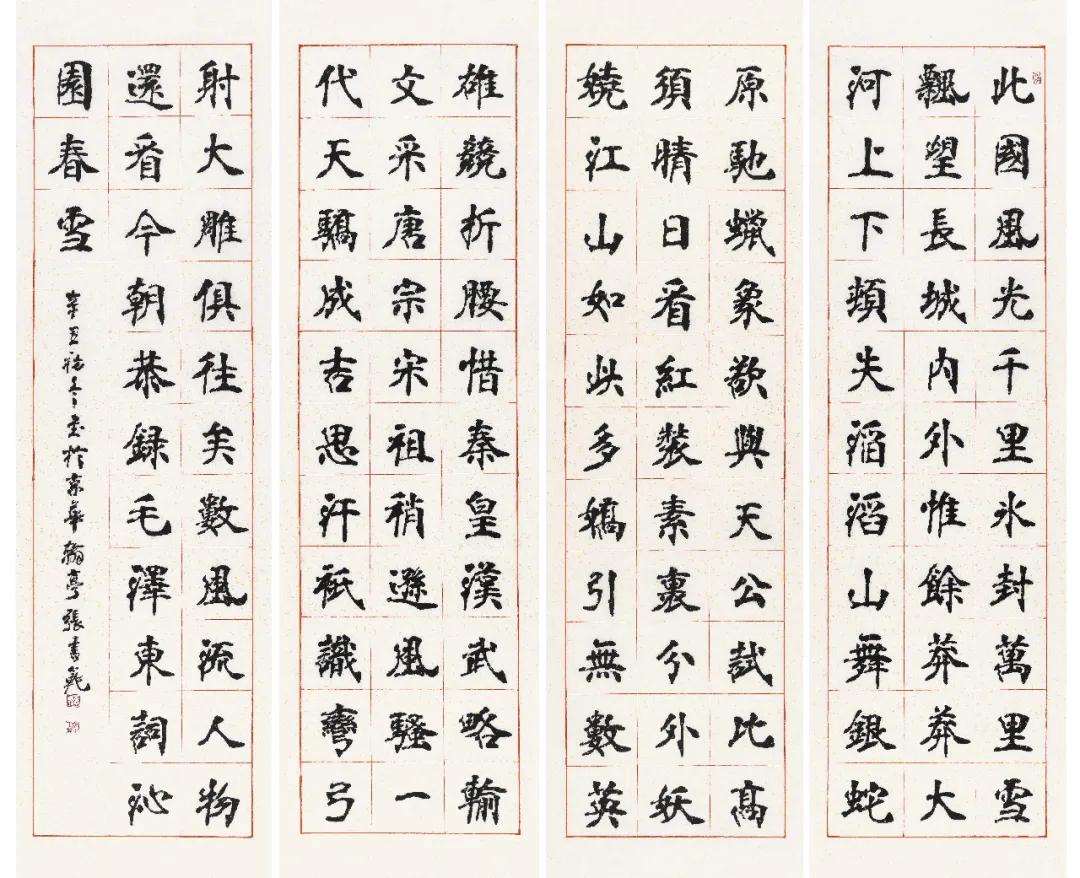 北國風光千里氷封萬里雪
飄望長城內外惟餘莽莽大
河上下頓失滔滔山舞銀蛇
原馳蠟象欲與天公試比高
須晴日看紅裝素裹分外妖
嬈江山如此多嬌引無數英
雄競折腰惜秦皇漢武略輸
文采唐宗宋祖稍遜風騷一
代天驕成吉思汗祇識彎弓
射大雕俱往矣數風流人物
還看今朝恭録毛澤東詞沁
園春雪
辛丑初冬書於京華翰亭張書範